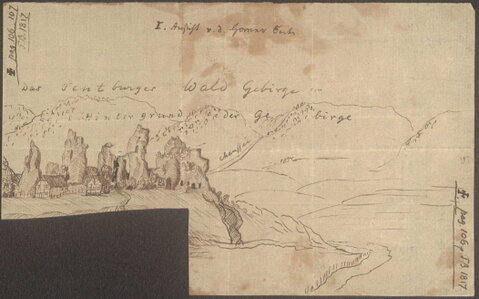 I. Ansicht v. d. Horner Seite
Das Teutburger Wald Gebirge
Hintergrund der Ge birge
chaussee
pag 106. 107
T.B. 1817
pag 106 T.B. 1817